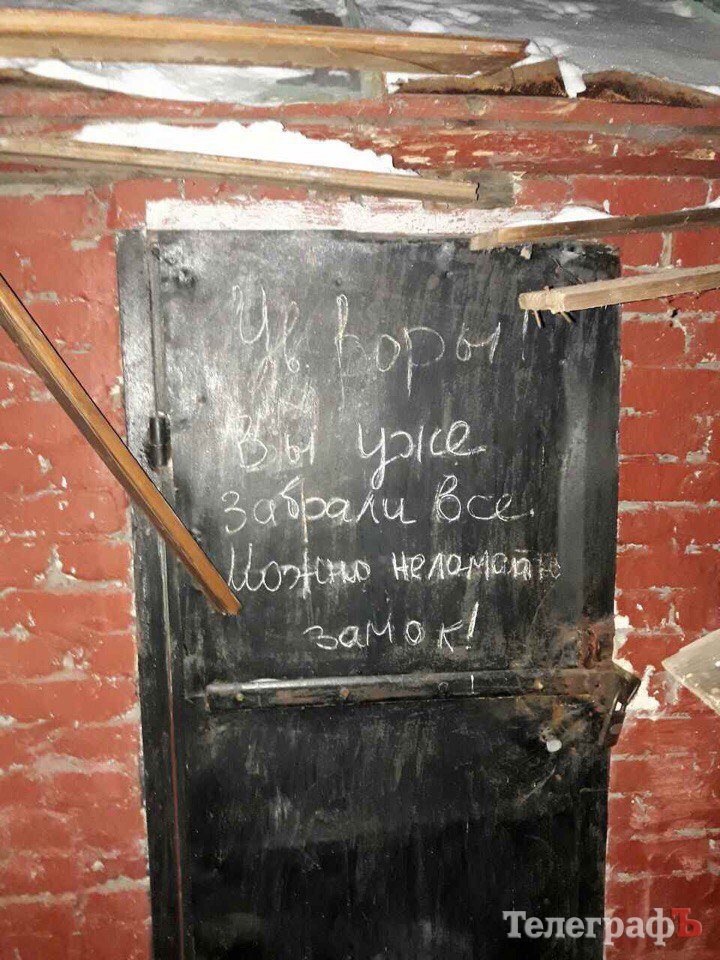 Ув. воры!
Вы уже
забрали все.
Можно неломайте
замок!
ТелеграфЪ